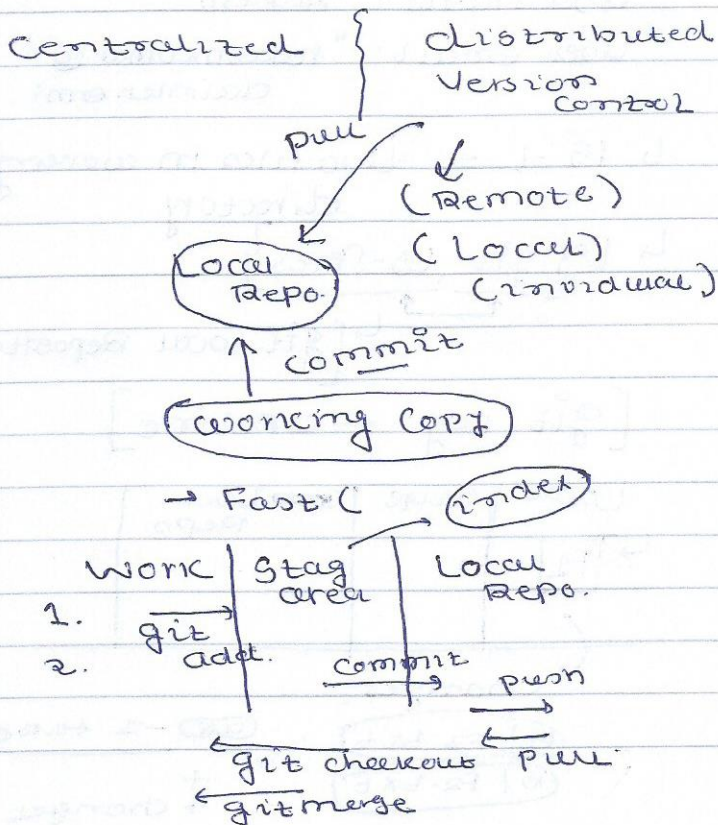 Centralized { distributed
Version
Control
pull
(Remote)
(Local)
(invidual)
Local
Repo.
commit
Working Copy
→ Fast (
index
Work | Stag | Local
area Repo.
1.
git
2. add.
commit
push
git checkout pull.
git merge